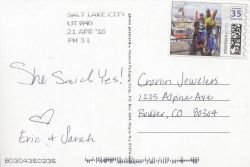 SALT LAKE CITY
UT 840
21 APR '16
PM 3 L
35
She Said Yes!
Eric & Sarah
Cronin Jewelers
1235 Alpine Ave
Boulder, CO 80304
80304350235